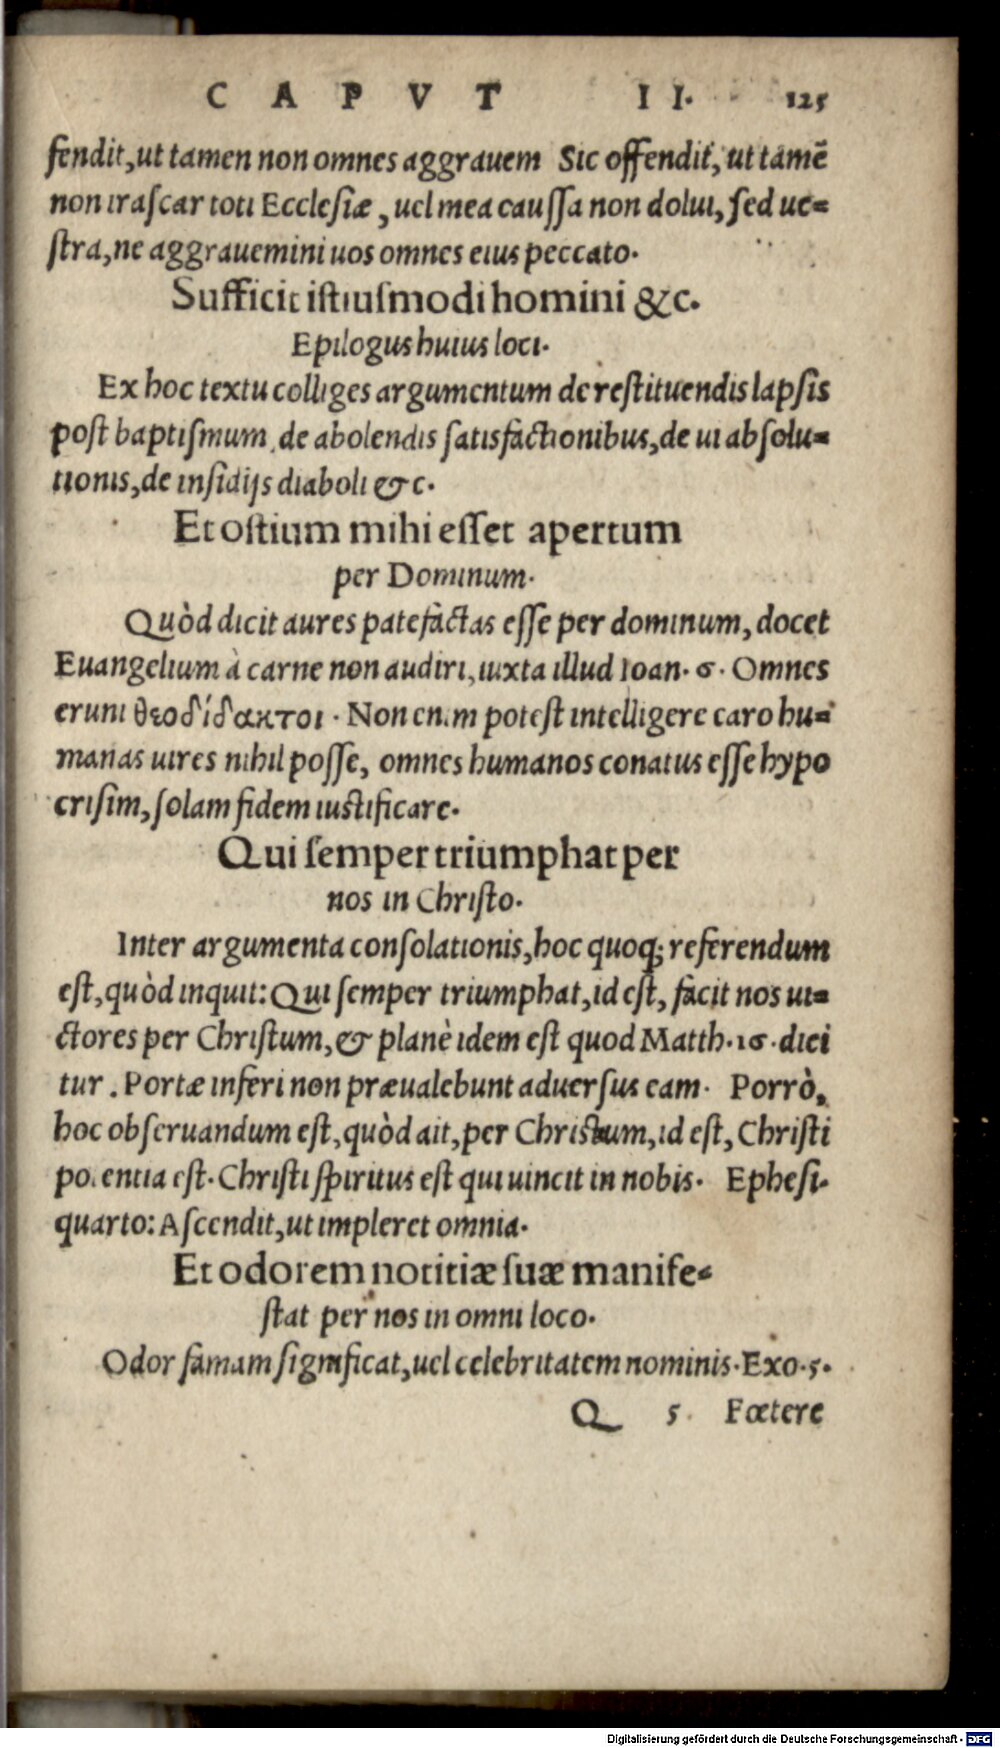 CAPVT II. 125
fendit, ut tamen non omnes aggrauem Sic offendit, ut tamē
non irascar toti Ecclesiæ, uel mea caussa non dolui, sed ue-
stra, ne aggrauemini uos omnes eius peccato.
Sufficit istiusmodi homini &c.
Epilogus huius loci.
Ex hoc textu colliges argumentum de restituendis lapsis
post baptismum, de abolendis satisfactionibus, de ui absolu-
tionis, de insidijs diaboli & c.
Et ostium mihi esset apertum
per Dominum.
Quòd dicit aures patefactas esse per dominum, docet
Euangelium à carne non audiri, iuxta illud Ioan. 6. Omnes
erunt θεοδίδακτοι. Non enim potest intelligere caro hu-
manas uires nihil posse, omnes humanos conatus esse hypo
crisim, solam fidem iustificare.
Qui semper triumphat per
nos in Christo.
Inter argumenta consolationis, hoc quoq; referendum
est, quòd inquit: Qui semper triumphat, id est, facit nos ui-
ctores per Christum, & planè idem est quod Matth. 16. dici
tur. Portæ inferi non præualebunt aduersus eam. Porrò,
hoc obseruandum est, quòd ait, per Christum, id est, Christi
potentia est. Christi spiritus est qui uincit in nobis. Ephesi.
quarto: Ascendit, ut impleret omnia.
Et odorem notitiæ suæ manife-
stat per nos in omni loco.
Odor famam significat, uel celebritatem nominis. Exo. 5.
Q 5 Fœtere
Digitalisierung gefördert durch die Deutsche Forschungsgemeinschaft - DFG